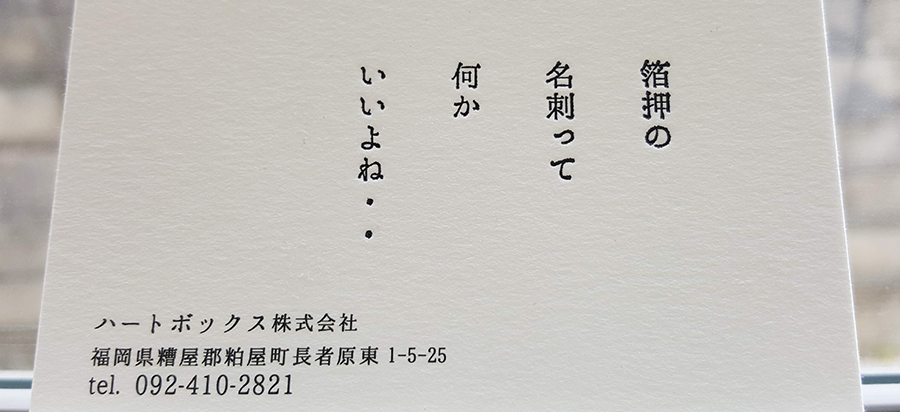 箔押の
名刺って
何か
いいよね・・
ハートボックス株式会社
福岡県糟屋郡粕屋町長者原東 1-5-25
tel. 092-410-2821